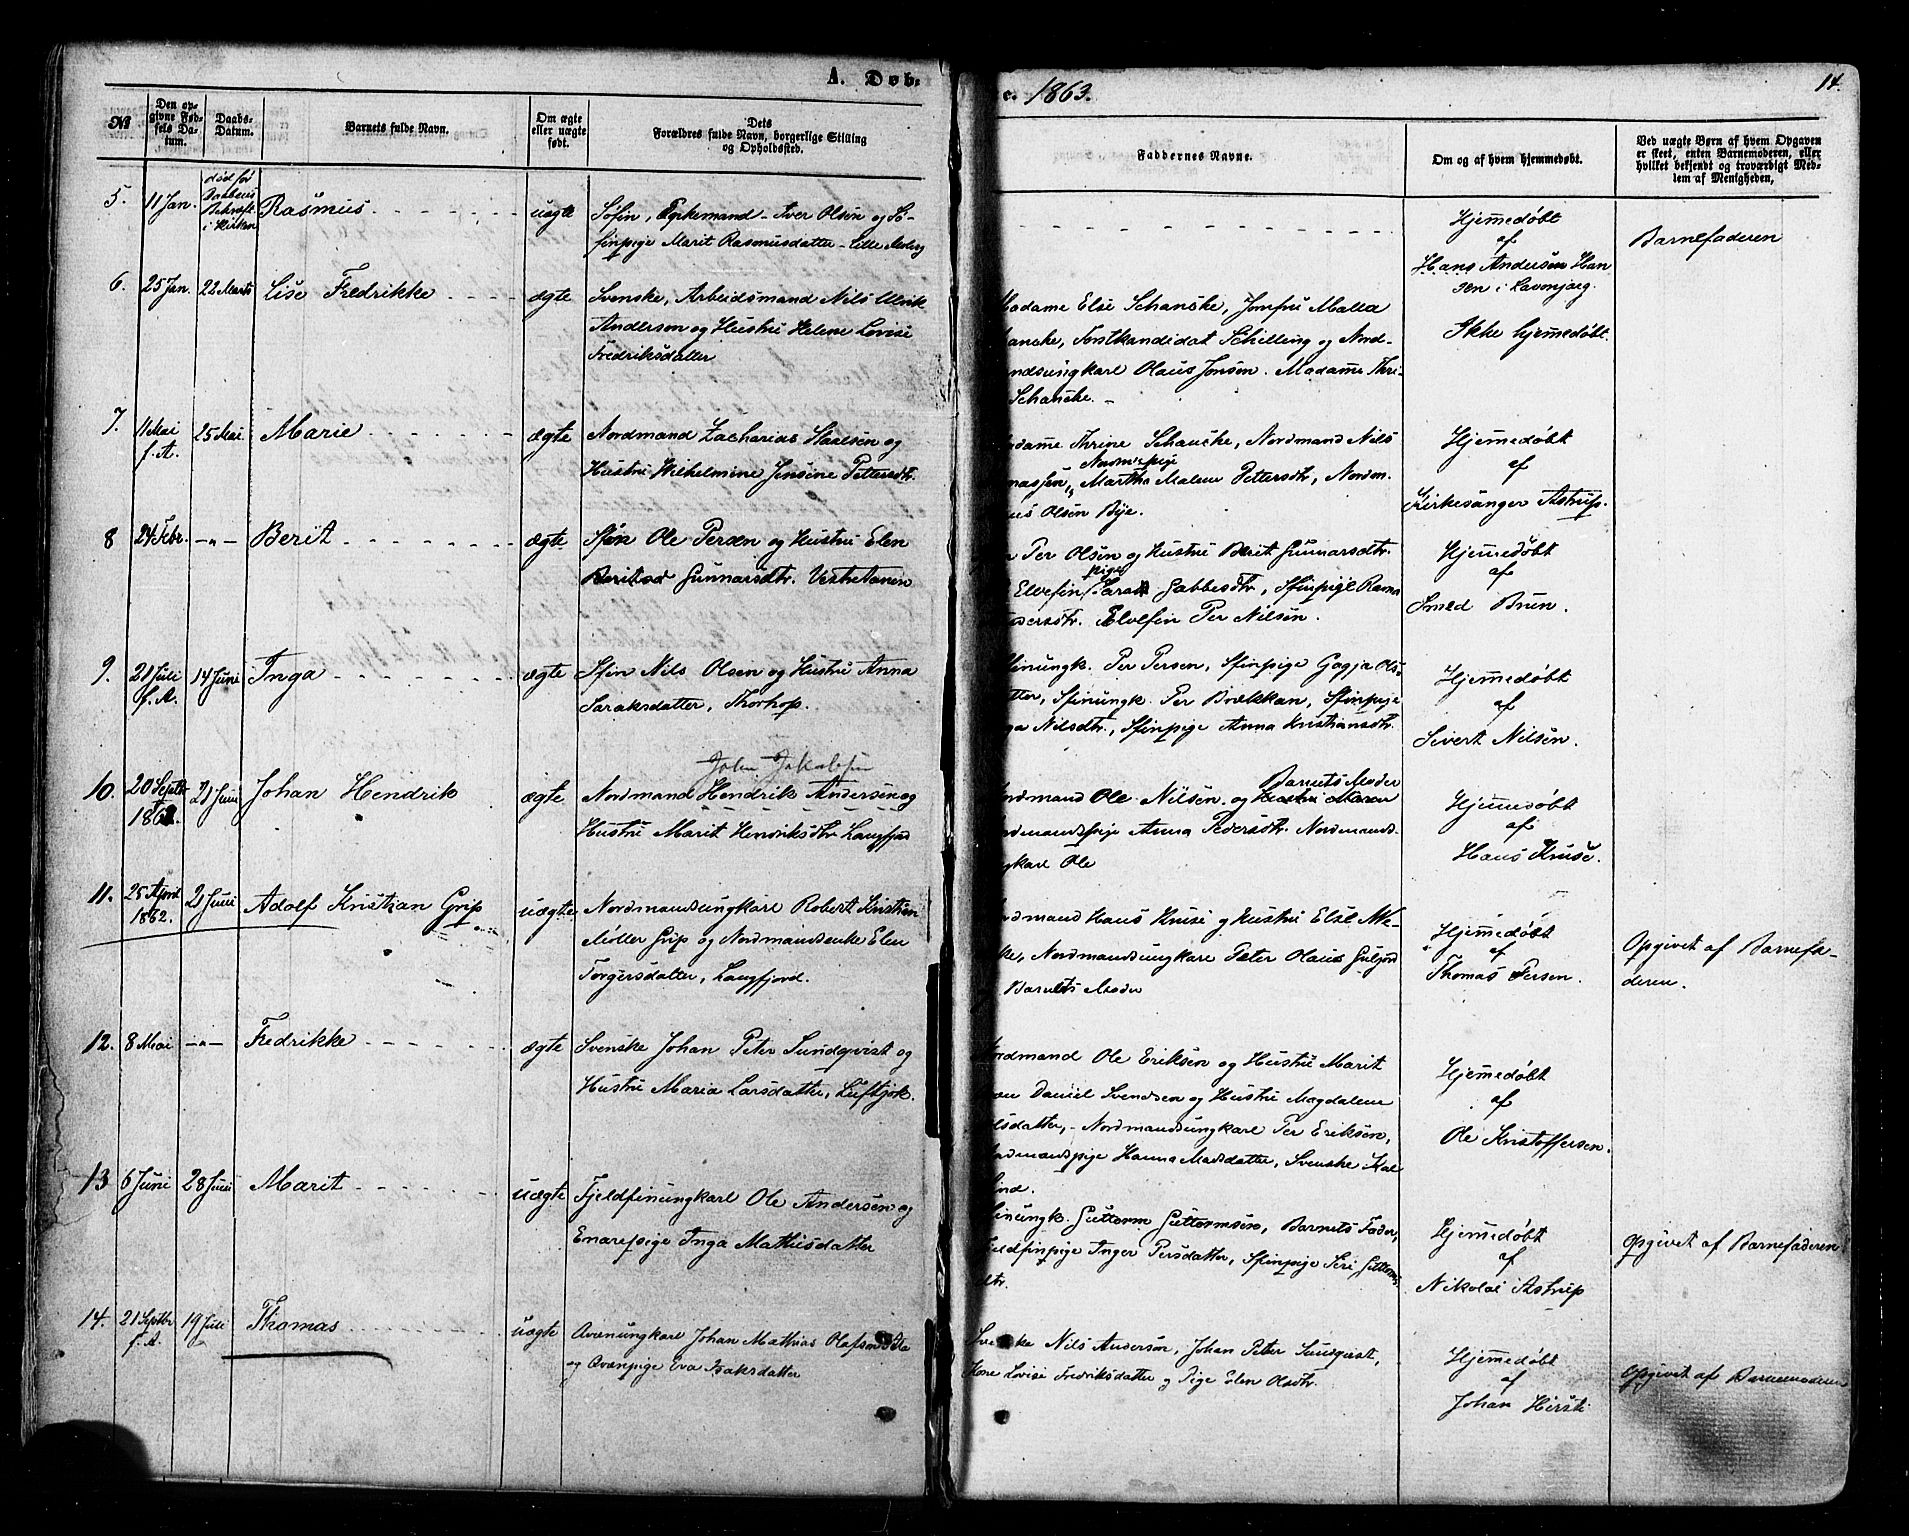 A. Døb.
e. 1863.
14.
№
Den opgivne Fødsels Datum.
Daabs-Datum.
Barnets fulde Navn.
Om ægte eller uægte født.
Dets Forældres fulde Navn, borgerlige Stilling og Opholdssted.
Faddernes Navne.
Om og af hvem hjemmedøbt.
Ved uægte Børn af hvem Opgaven er skeet, enten Barnemoderen, eller hvilket bekjendt og troværdigt Medlem af Menigheden,
5. 11 Jan. død før Daabens Bekræft. i Kirken Rasmus uægte Søfin, Enkemand Iver Olsen og Sø-
finpige Marit Rasmusdatter - Lille
Hjemmedøbt
af
Hans Andersen Han
sen i Lavonjarg.
Barnefaderen
6. 25 Jan. 22 Marts Lise Fredrikke ægte Svenske, Arbeidsmand Nils Ulrik
Anderson og Hustru Helene Lovise
Fredriksdatter
Madame Else Schancke, Jomfru Malla
ancke, Forstkandidat Schilling og Nord-
ndsungkarl Olaus Jonsen. Madame Thri-
Schancke. -
Ikke hjemmedøbt.
7. 11 Mai f. A. 25 Mai Marie ægte Nordmand Zacharias Isaksen og
Hustru Wilhelmine Jensine Pettersdtr.
adame Thrine Schancke, Nordmand Nils
Nordm.pige
nassen, Martha Malene Pettersdtr, Nordm.
us Olsen Bye.
Hjemmedøbt
af
Kirkesanger Astrup.
8 24 Febr. -"- Berit ægte Sfin Ole Persen og Hustru Elen
Gunnarsdtr. Vestretanen
n Per Olsen og Hustru Berit Gunnarsdtr.
pige
Elvefin Sara Gabbesdtr, Sfinpige Ragna
dersdtr. Elvefin Per Nilsen.
Hjemmedøbt
af
Smed Brun.
9. 21 Juli f. A. 14 Juni Inga ægte Sfin Nils Olsen og Hustru Anna
Saraksdatter, Thorhop.
finungk. Per Persen, Sfinpige Gagja Ols-
tter, Sfinungk. Per Brækkan, Sfinpige
ga Nilsdtr., Sfinpige Anna Kristiansdtr.
Hjemmedøbt
af
Sivert Nilsen.
John Jakobsen
10. 20 Septbr 1862. 21 Juni Johan Hendrik ægte Nordmand Hendrik Andersen og
Hustru Marit Hendriksdtr Langfjord
Barnets Moder
ordmand Ole Nilsen og Hustru Maren
ordmandspige Anna Pedersdtr. Nordmands-
gkarl Ole
Hjemmedøbt
af
Hans Kruse.
11. 25 April 1862. 21 Juni Adolf Kristian Grip uægte Nordmandsungkarl Robert Kristian
Møller Grip og Nordmandsenke Elen
Torgersdatter, Langfjord.
ordmand Hans Kruse og Hustru Else We-
ke, Nordmandsungkarl Peter Olaus Guljord
Barnets Moder
Hjemmedøbt
af
Thomas Persen.
Opgivet af Barnefa-
deren.
12. 8 Mai -"- Fredrikke ægte Svenske Johan Peter Sundqvist og
Hustru Maria Larsdatter, Luftjok.
Nordmand Ole Eriksen og Hustru Marit
Daniel Svendsen og Hustru Magdalene
lsdatter, - Nordmandsungkarl Per Eriksen,
ordmandspige Hanna Madsdatter, Svenske
ind.
Hjemmedøbt
af
Ole Kristoffersen.
13 6 Juni 28 Juni Marit uægte Fjeldfinungkarl Ole Andersen og
Enarepige Inga Mathisdatter
finungk. Guttorm Guttormsen, Barnets Fader,
jeldfinpige Inger Persdatter, Sfinpige Siri Guttorms
dtr.
Hjemmedøbt
af
Nikolai Astrup
Opgivet af Barnefaderen
14. 21 Septbr f. A. 19 Juli Thomas uægte Qvænungkarl Johan Mathias Olafsen
og Qvænpige Eva Isaksdatter
Svenske Nils Anderson, Johan Peter Sundqvist,
Kone Lovise Fredriksdatter og Pige Elen Olsdtr.
Hjemmedøbt
af
Johan Hirsti
Opgivet af Barnemoderen